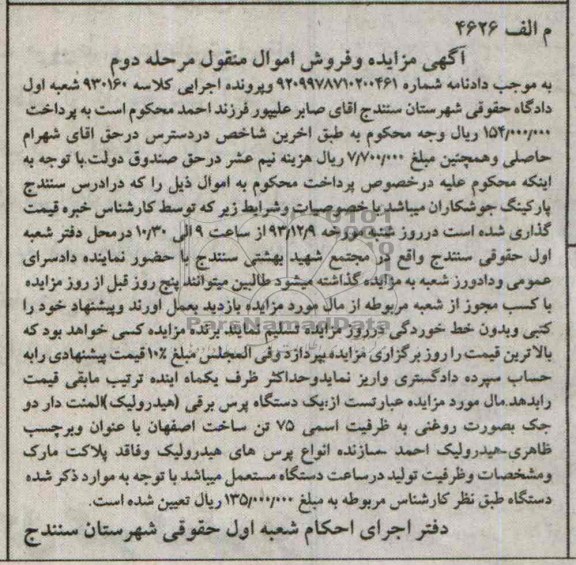 م الف ۴۶۲۶
آگهی مزایده وفروش اموال منقول مرحله دوم
به موجب دادنامه شماره ۹۲۰۹۹۷۸۷۱۰۲۰۰۴۶۱ وپرونده اجرایی کلاسه ۹۳۰۱۶۰ شعبه اول
دادگاه حقوقی شهرستان سنندج اقای صابر علیپور فرزند احمد محکوم است به پرداخت
۱۵۴/۰۰۰/۰۰۰ ریال وجه محکوم به طبق اخرین شاخص دردسترس درحق اقای شهرام
حاصلی وهمچنین مبلغ ۷/۷۰۰/۰۰۰ ریال هزینه نیم عشر درحق صندوق دولت.با توجه به
اینکه محکوم علیه درخصوص پرداخت محکوم به اموال ذیل را که درادرس سنندج
پارکینگ جوشکاران میباشد با خصوصیات وشرایط زیر که توسط کارشناس خبره قیمت
گذاری شده است درروز شنبه مورخه ۹۳/۱۲/۹ از ساعت ۹ الی ۱۰/۳۰ درمحل دفتر شعبه
اول حقوقی سنندج واقع در مجتمع شهید بهشتی سنندج با حضور نماینده دادسرای
عمومی ودادورز شعبه به مزایده گذاشته میشود طالبین میتوانند پنج روز قبل از روز مزایده
با کسب مجوز از شعبه مربوطه از مال مورد مزایده بازدید بعمل اورند وپیشنهاد خود را
کتبی وبدون خط خوردگی درروز مزایده تسلیم نمایند برنده مزایده کسی خواهد بود که
بالاترین قیمت را روز برگزاری مزایده بپردازد وفی المجلس مبلغ ۱۰٪ قیمت پیشنهادی رابه
حساب سپرده دادگستری واریز نمایدوحداکثر ظرف یکماه اینده ترتیب مابقی قیمت
رابدهد.مال مورد مزایده عبارتست از:یک دستگاه پرس برقی (هیدرولیک)المنت دار دو
جک بصورت روغنی به ظرفیت اسمی ۷۵ تن ساخت اصفهان با عنوان وبرچسب
ظاهری-هیدرولیک احمد سازنده انواع پرس های هیدرولیک وفاقد پلاکت مارک
ومشخصات وظرفیت تولید درساعت دستگاه مستعمل میباشد با توجه به موارد ذکر شده
دستگاه طبق نظر کارشناس مربوطه به مبلغ ۱۳۵/۰۰۰/۰۰۰ ریال تعیین شده است.
دفتر اجرای احکام شعبه اول حقوقی شهرستان سنندج